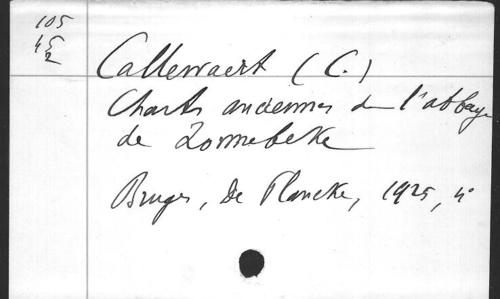 105
45
2
Callewaert (C.)
Chartes anciennes de l'abbaye
de Zonnebeke
Bruges, De Plancke, 1925, 4°